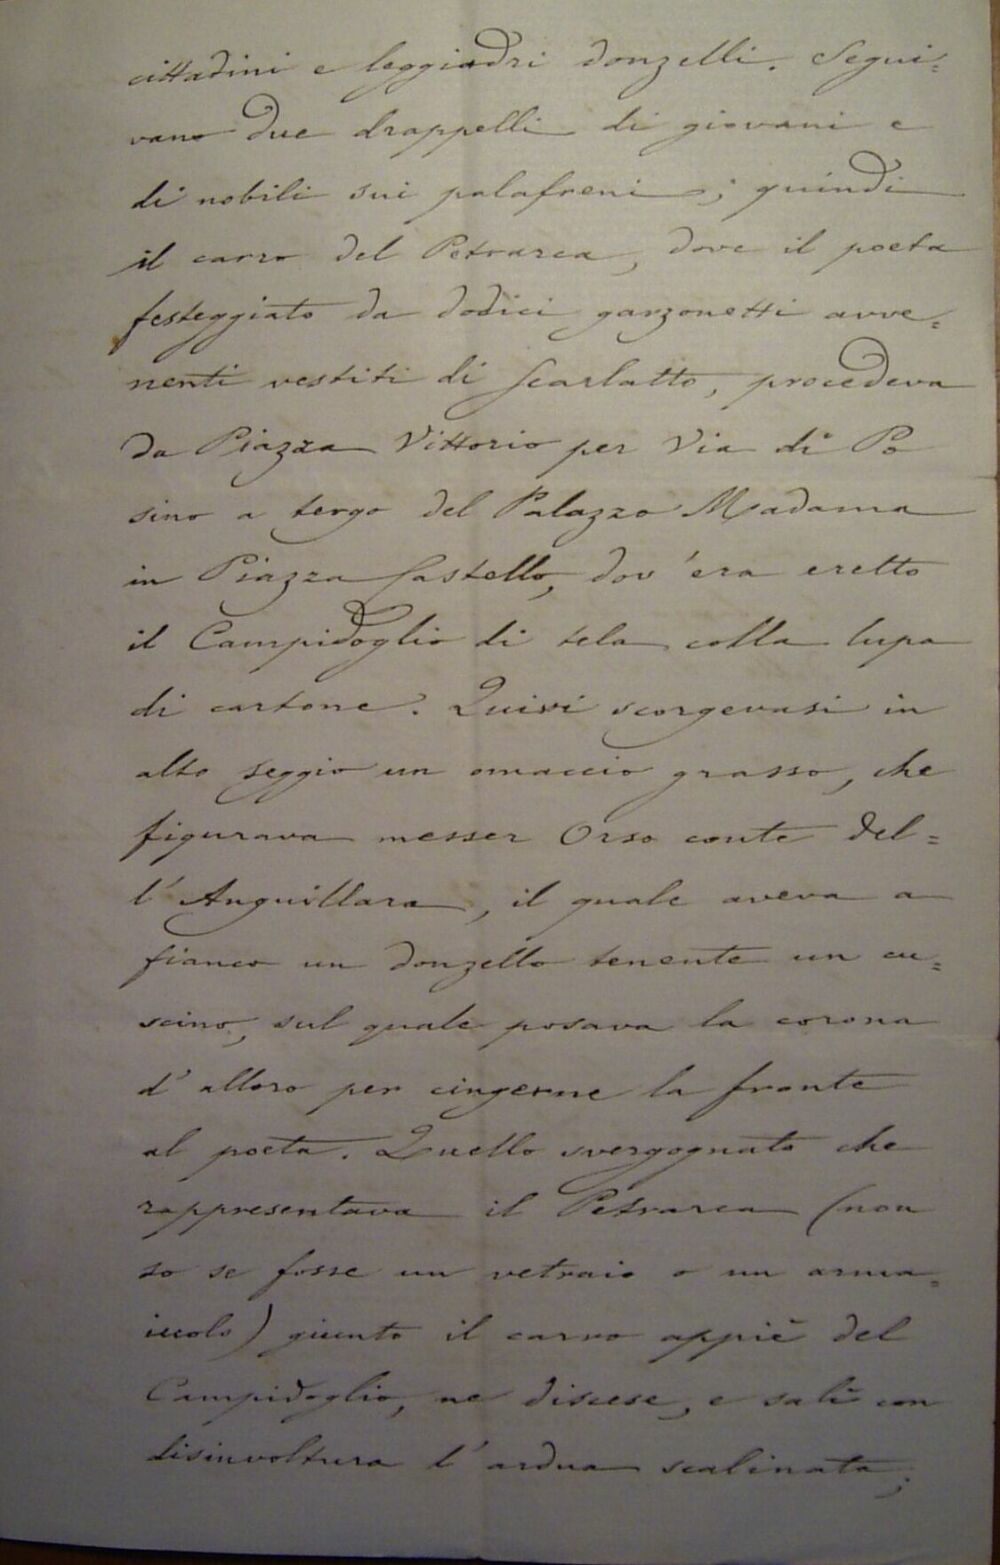 cittadini e leggiadri donzelli. Segui=
vano due drappelli di giovani e
di nobili sui palafreni; quindi
il carro del Petrarca, dove il poeta
festeggiato da dodici garzonetti avve=
nenti vestiti di scarlatto, procedeva
da Piazza Vittorio per Via di Po
sino a tergo del Palazzo Madama
in Piazza Castello, dov'era eretto
il Campidoglio di tela colla lupa
di cartone. Quivi scorgevasi in
alto seggio un omaccio grasso, che
figurava messer Orso conte del=
l'Anguillara, il quale aveva a
fianco un donzello tenente un cu=
scino, sul quale posava la corona
d'alloro per cingerne la fronte
al poeta. Quello svergognato che
rappresentava il Petrarca (non
so se fosse un vetraio o un arma=
iuolo) giunto il carro appiè del
Campidoglio, ne discese, e salì con
disinvoltura l'ardua scalinata;